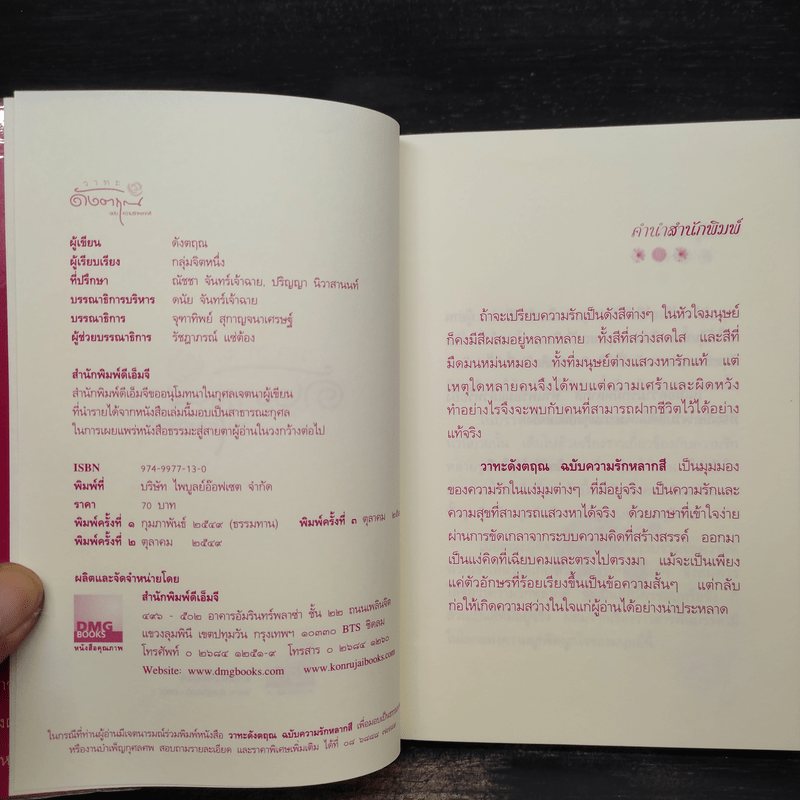 วาทะ
ดังตฤณ
ฉบับ ความรักหลากสี
ผู้เขียน ดังตฤณ
ผู้เรียบเรียง กลุ่มจิตหนึ่ง
ที่ปรึกษา ณัชชา จันทร์เจ้าฉาย, ปริญญา นิวาสานนท์
บรรณาธิการบริหาร ดนัย จันทร์เจ้าฉาย
บรรณาธิการ จุฑาทิพย์ สุกาญจนาเศรษฐ์
ผู้ช่วยบรรณาธิการ รัชฎาภรณ์ แซ่ต้อง
สำนักพิมพ์ดีเอ็มจี
สำนักพิมพ์ดีเอ็มจีขออนุโมทนาในกุศลเจตนาผู้เขียน
ที่นำรายได้จากหนังสือเล่มนี้มอบเป็นสาธารณะกุศล
ในการเผยแพร่หนังสือธรรมะสู่สายตาผู้อ่านในวงกว้างต่อไป
ISBN 974-9977-13-0
พิมพ์ที่ บริษัท ไพบูลย์อ๊อฟเซต จำกัด
ราคา 70 บาท
พิมพ์ครั้งที่ ๑ กุมภาพันธ์ ๒๕๔๙ (ธรรมทาน) พิมพ์ครั้งที่ ๓ ตุลาคม
พิมพ์ครั้งที่ ๒ ตุลาคม ๒๕๔๙
ผลิตและจัดจำหน่ายโดย
สำนักพิมพ์ดีเอ็มจี
๔๙๖ - ๕๐๒ อาคารอัมรินทร์พลาซ่า ชั้น ๒๒ ถนนเพลินจิต
แขวงลุมพินี เขตปทุมวัน กรุงเทพฯ ๑๐๓๓๐ BTS ชิดลม
โทรศัพท์ ๐ ๒๖๘๔ ๑๒๕๑-๙ โทรสาร ๐ ๒๖๘๔ ๑๒๖๐
Website: www.dmgbooks.com www.konrujaibooks.com
DMG
BOOKS
หนังสือคุณภาพ
ในกรณีที่ท่านผู้อ่านมีเจตนารมณ์ร่วมพิมพ์หนังสือ วาทะดังตฤณ ฉบับความรักหลากสี เพื่อมอบเป็น
หรืองานบำเพ็ญกุศลศพ สอบถามรายละเอียด และราคาพิเศษเพิ่มเติม ได้ที่
คำนำสำนักพิมพ์
ถ้าจะเปรียบความรักเป็นดังสีต่างๆ ในหัวใจมนุษย์
ก็คงมีสีผสมอยู่หลากหลาย ทั้งสีที่สว่างสดใส และสีที่
มืดมนหม่นหมอง ทั้งที่มนุษย์ต่างแสวงหารักแท้ แต่
เหตุใดหลายคนจึงได้พบแต่ความเศร้าและผิดหวัง
ทำอย่างไรจึงจะพบกับคนที่สามารถฝากชีวิตไว้ได้อย่าง
แท้จริง
วาทะดังตฤณ ฉบับความรักหลากสี เป็นมุมมอง
ของความรักในแง่มุมต่างๆ ที่มีอยู่จริง เป็นความรักและ
ความสุขที่สามารถแสวงหาได้จริง ด้วยภาษาที่เข้าใจง่าย
ผ่านการขัดเกลาจากระบบความคิดที่สร้างสรรค์ ออกมา
เป็นแง่คิดที่เฉียบคมและตรงไปตรงมา แม้จะเป็นเพียง
แค่ตัวอักษรที่ร้อยเรียงขึ้นเป็นข้อความสั้นๆ แต่กลับ
ก่อให้เกิดความสว่างในใจแก่ผู้อ่านได้อย่างน่าประหลาด